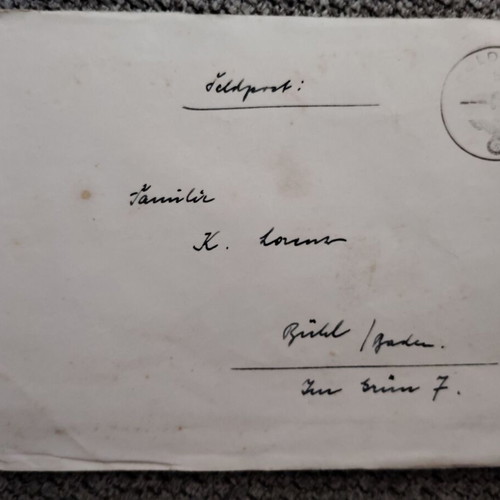 Feldpost:
Familie
K. Lorenz
Bühl /Baden.
Im Grün 7.